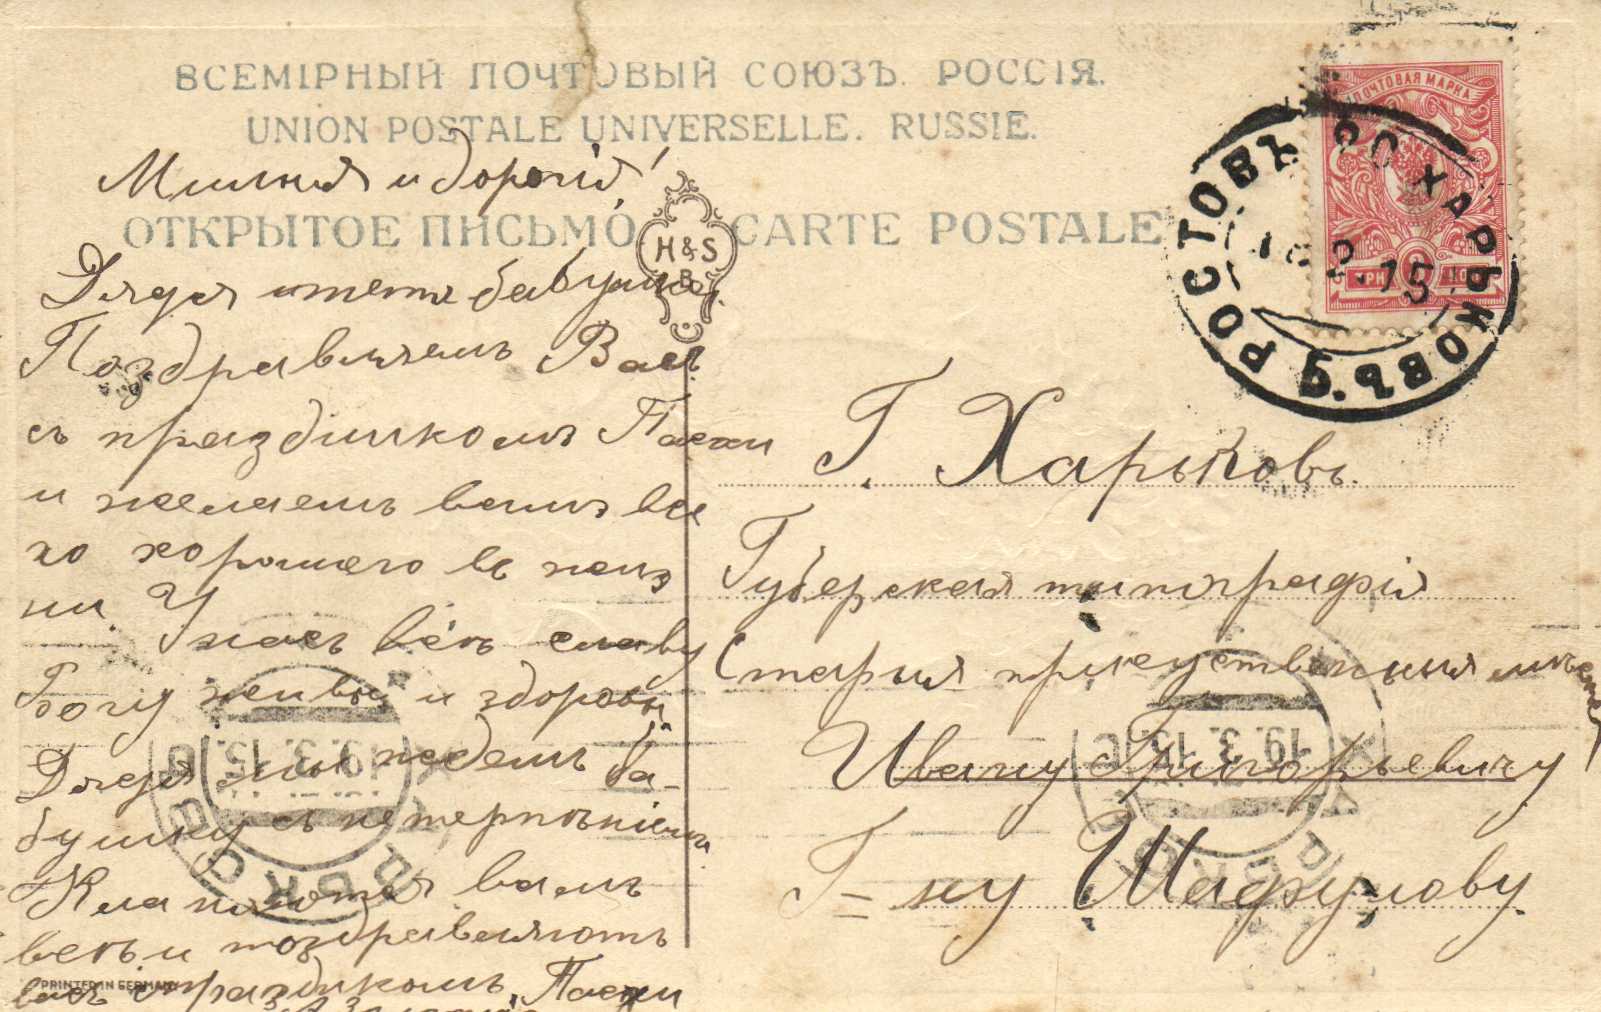 ВСЕМІРНЫЙ ПОЧТОВЫЙ СОЮЗЪ. РОССІЯ.
UNION POSTALE UNIVERSELLE. RUSSIE.
ОТКРЫТОЕ ПИСЬМО
CARTE POSTALE
H&S
B
ПОЧТОВАЯ МАРКА
РОСТОВЪ
ХАРЬКОВЪ
Милыя и дорогія!
Дядя и тетя бабушка
Поздравляемъ Васъ
съ праздникомъ Пасхи
и желаемъ вамъ все
го хорошего въ жиз
ни. У насъ всѣ славу
Богу живы и здоровы
Дядя мы ждемъ ба-
бушку съ нетерпѣніемъ
Кланиются вамъ
всѣ и поздравляютъ
васъ с праздникомъ Пасхи
PRINTED IN GERMANY
Г. Харьковъ.
Губерская типографія
Старыя присутственыя мѣста
Ивану Григорьевичу
Г=ну Шафулову.
19.3.15
ХАРЬКОВ
19.3.15